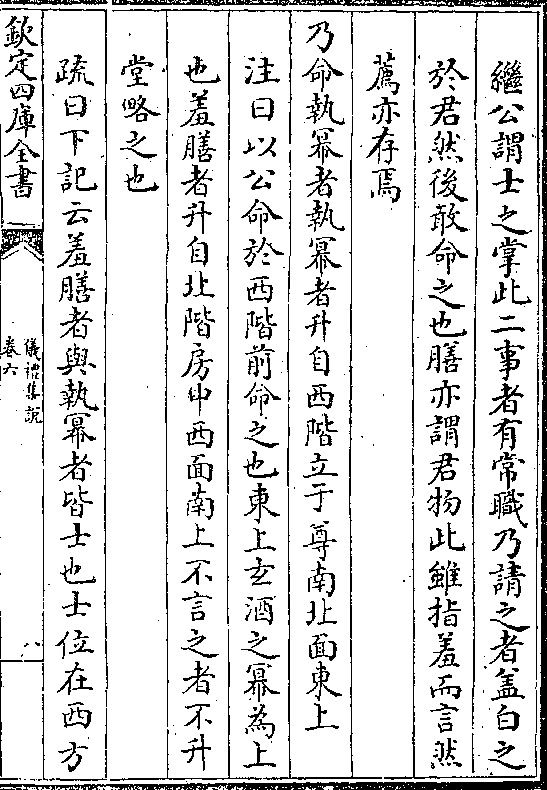 繼公謂士之掌此二事者有常職乃請之者盖白之
於君然後敢命之也膳亦謂君物此雖指羞而言然
薦亦存焉
乃命執冪者執冪者升自西階立于尊南北面東上
注曰以公命於西階前命之也東上玄酒之冪為上
也羞膳者升自北階房中西面南上不言之者不升
堂略之也
疏曰下記云羞膳者與執冪者皆士也士位在西方
欽定四庫全書
儀禮集說
卷六
八